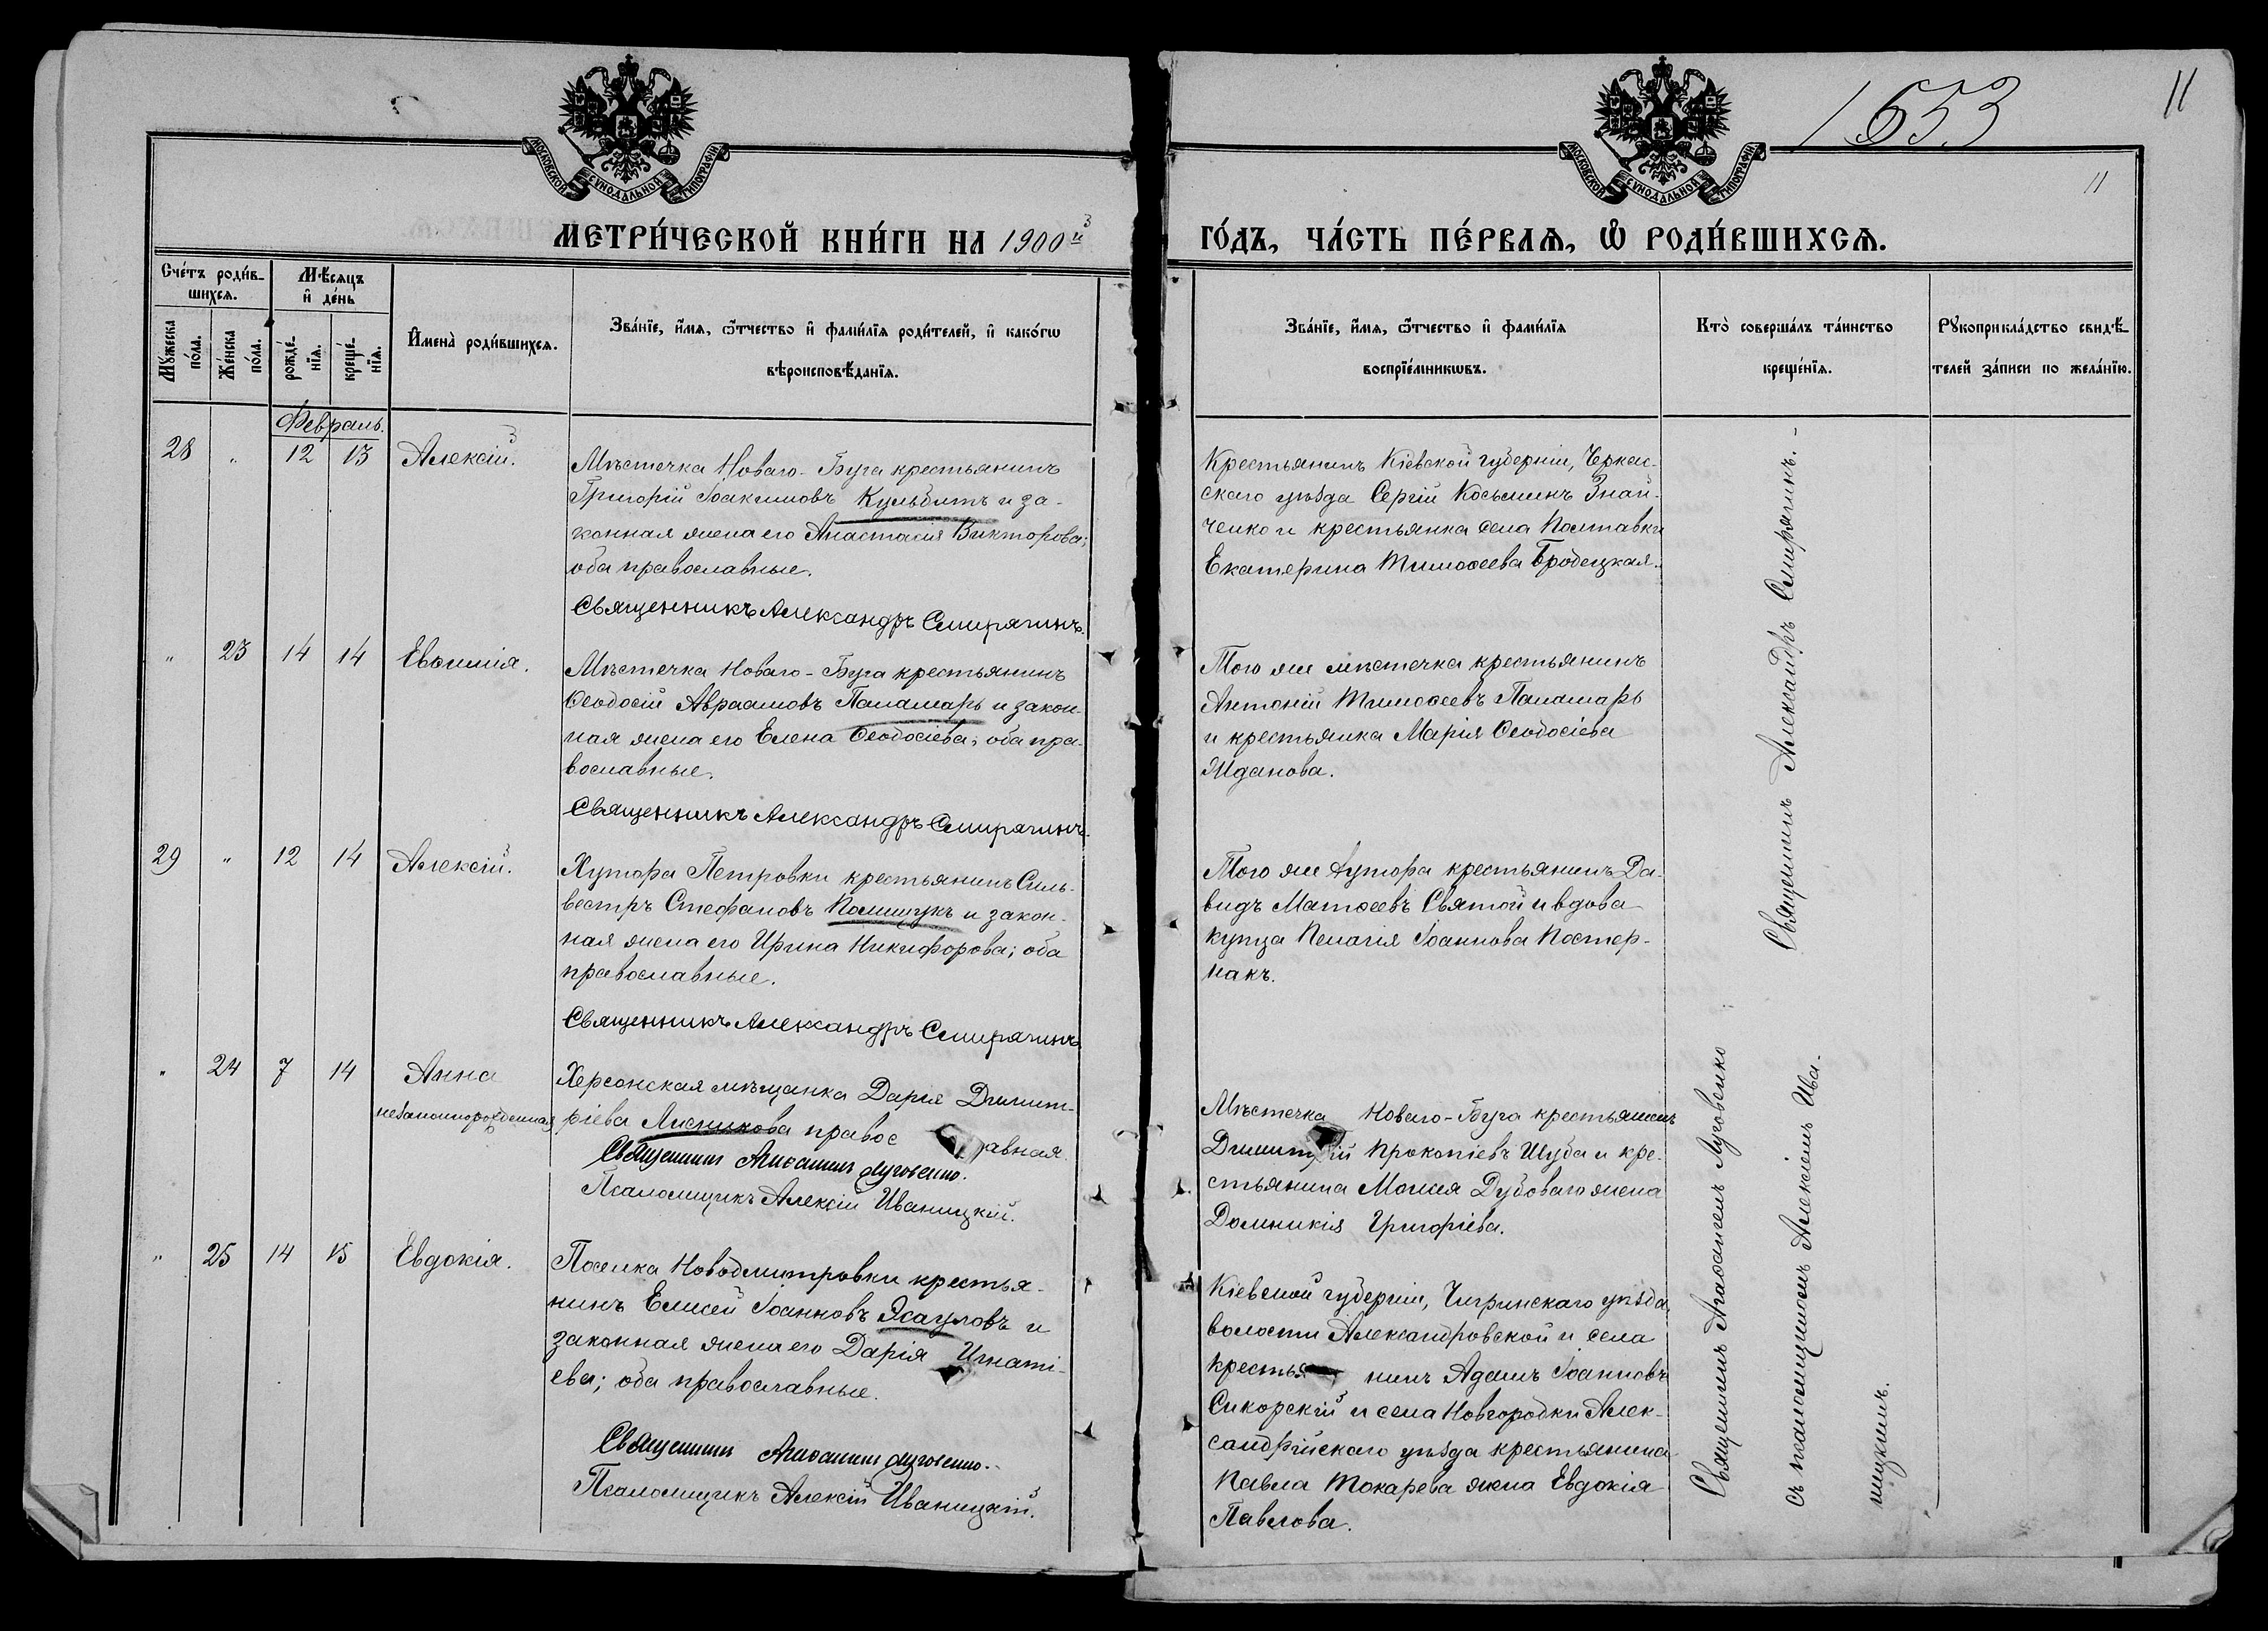 1653
11
11
МОСКОВСКОЙ СѴНОДАЛЬНОЙ ТИПОГРАФІИ
МОСКОВСКОЙ СѴНОДАЛЬНОЙ ТИПОГРАФІИ
МЕТРИ́ЧЕСКОЙ КНИ́ГИ НА 1900й
ГО́ДЪ, ЧА́СТЬ ПЕ́РВАѦ, Ѡ҆ РОДИ́ВШИХСѦ.
Сче́тъ роди́в-
шихсѧ.
Мꙋ́жеска по́ла.
Же́нска по́ла.
Мѣ́сѧцъ
и҆ де́нь
рожде́-
нїѧ.
креще́-
нїѧ.
И҆мена̀ роди́вшихсѧ.
Зва́нїе, и҆́мѧ, ѻ҆́тчество и҆ фами́лїѧ роди́телей, и҆ како́гѡ
вѣроисповѣ́данїѧ.
Зва́нїе, и҆́мѧ, ѻ҆́тчество и҆ фами́лїѧ
воспрїе́мникѡвъ.
Кто̀ соверша́лъ та́инство
креще́нїѧ.
Рꙋкоприкла́дство свидѣ́-
телей за́писи по жела́нїю.
Февраль.
28 " 12 13 Алексій.
Мѣстечка Новаго-Буга крестьянинъ
Григорій Іоакимовъ Кульбитъ и за-
конная жена его Анастасія Викторова;
оба православные.
Священникъ Александръ Смирягинъ.
Крестьянинъ Кіевской губерніи, Черкас-
скаго уѣзда Сергій Косьминъ Знай-
ченко и крестьянка села Полтавки
Екатерина Тимоѳеева Бродецкая.
" 23 14 14 Евѳимія.
Мѣстечка Новаго-Буга крестьянинъ
Ѳеодосій Авраамовъ Паламарь и закон-
ная жена его Елена Ѳеодосіева; оба пра-
вославные.
Священникъ Александръ Смирягинъ.
Того же мѣстечка крестьянинъ
Антоній Тимоѳеевъ Паламарь
и крестьянка Марія Ѳеодосіева
Жданова.
29 " 12 14 Алексій.
Хутора Петровки крестьянинъ Силь-
вестръ Стефановъ Полищукъ и закон-
ная жена его Ирина Никифорова; оба
православные.
Священникъ Александръ Смирягинъ.
Того же хутора крестьянинъ Да-
видъ Матѳеевъ Святой и вдова
купца Пелагія Іоаннова Постер-
накъ.
" 24 7 14 Анна
незаконнорожденная
Херсонская мѣщанка Дарія Димит-
ріева Лисникова правос авная.
Священникъ Агаѳангелъ Луговенко.
Псаломщикъ Алексій Иваницкій.
Мѣстечка Новаго-Буга крестьянинъ
Димитрій Прокопіевъ Шуба и кре-
стьянина Моисея Дубоваго жена
Домникія Григоріева.
" 25 14 15 Евдокія.
Поселка Новодмитровки крестья-
нинъ Елисей Іоанновъ Ясауловъ и
законная жена его Дарія Игнаті-
ева; оба православные.
Священникъ Агаѳангелъ Луговенко.
Псаломщикъ Алексій Иваницкій.
Кіевской губерніи, Чигринскаго уѣзда,
волости Александровской и села
крестья нинъ Адамъ Іоанновъ
Сикорскій и села Новгородки Алек-
сандрійскаго уѣзда крестьянина
Павла Токарева жена Евдокія
Павлова.
Священникъ Александръ Смирягинъ.
Священникъ Агаѳангелъ Луговенко
съ псаломщикомъ Алексіемъ Ива-
ницкимъ.